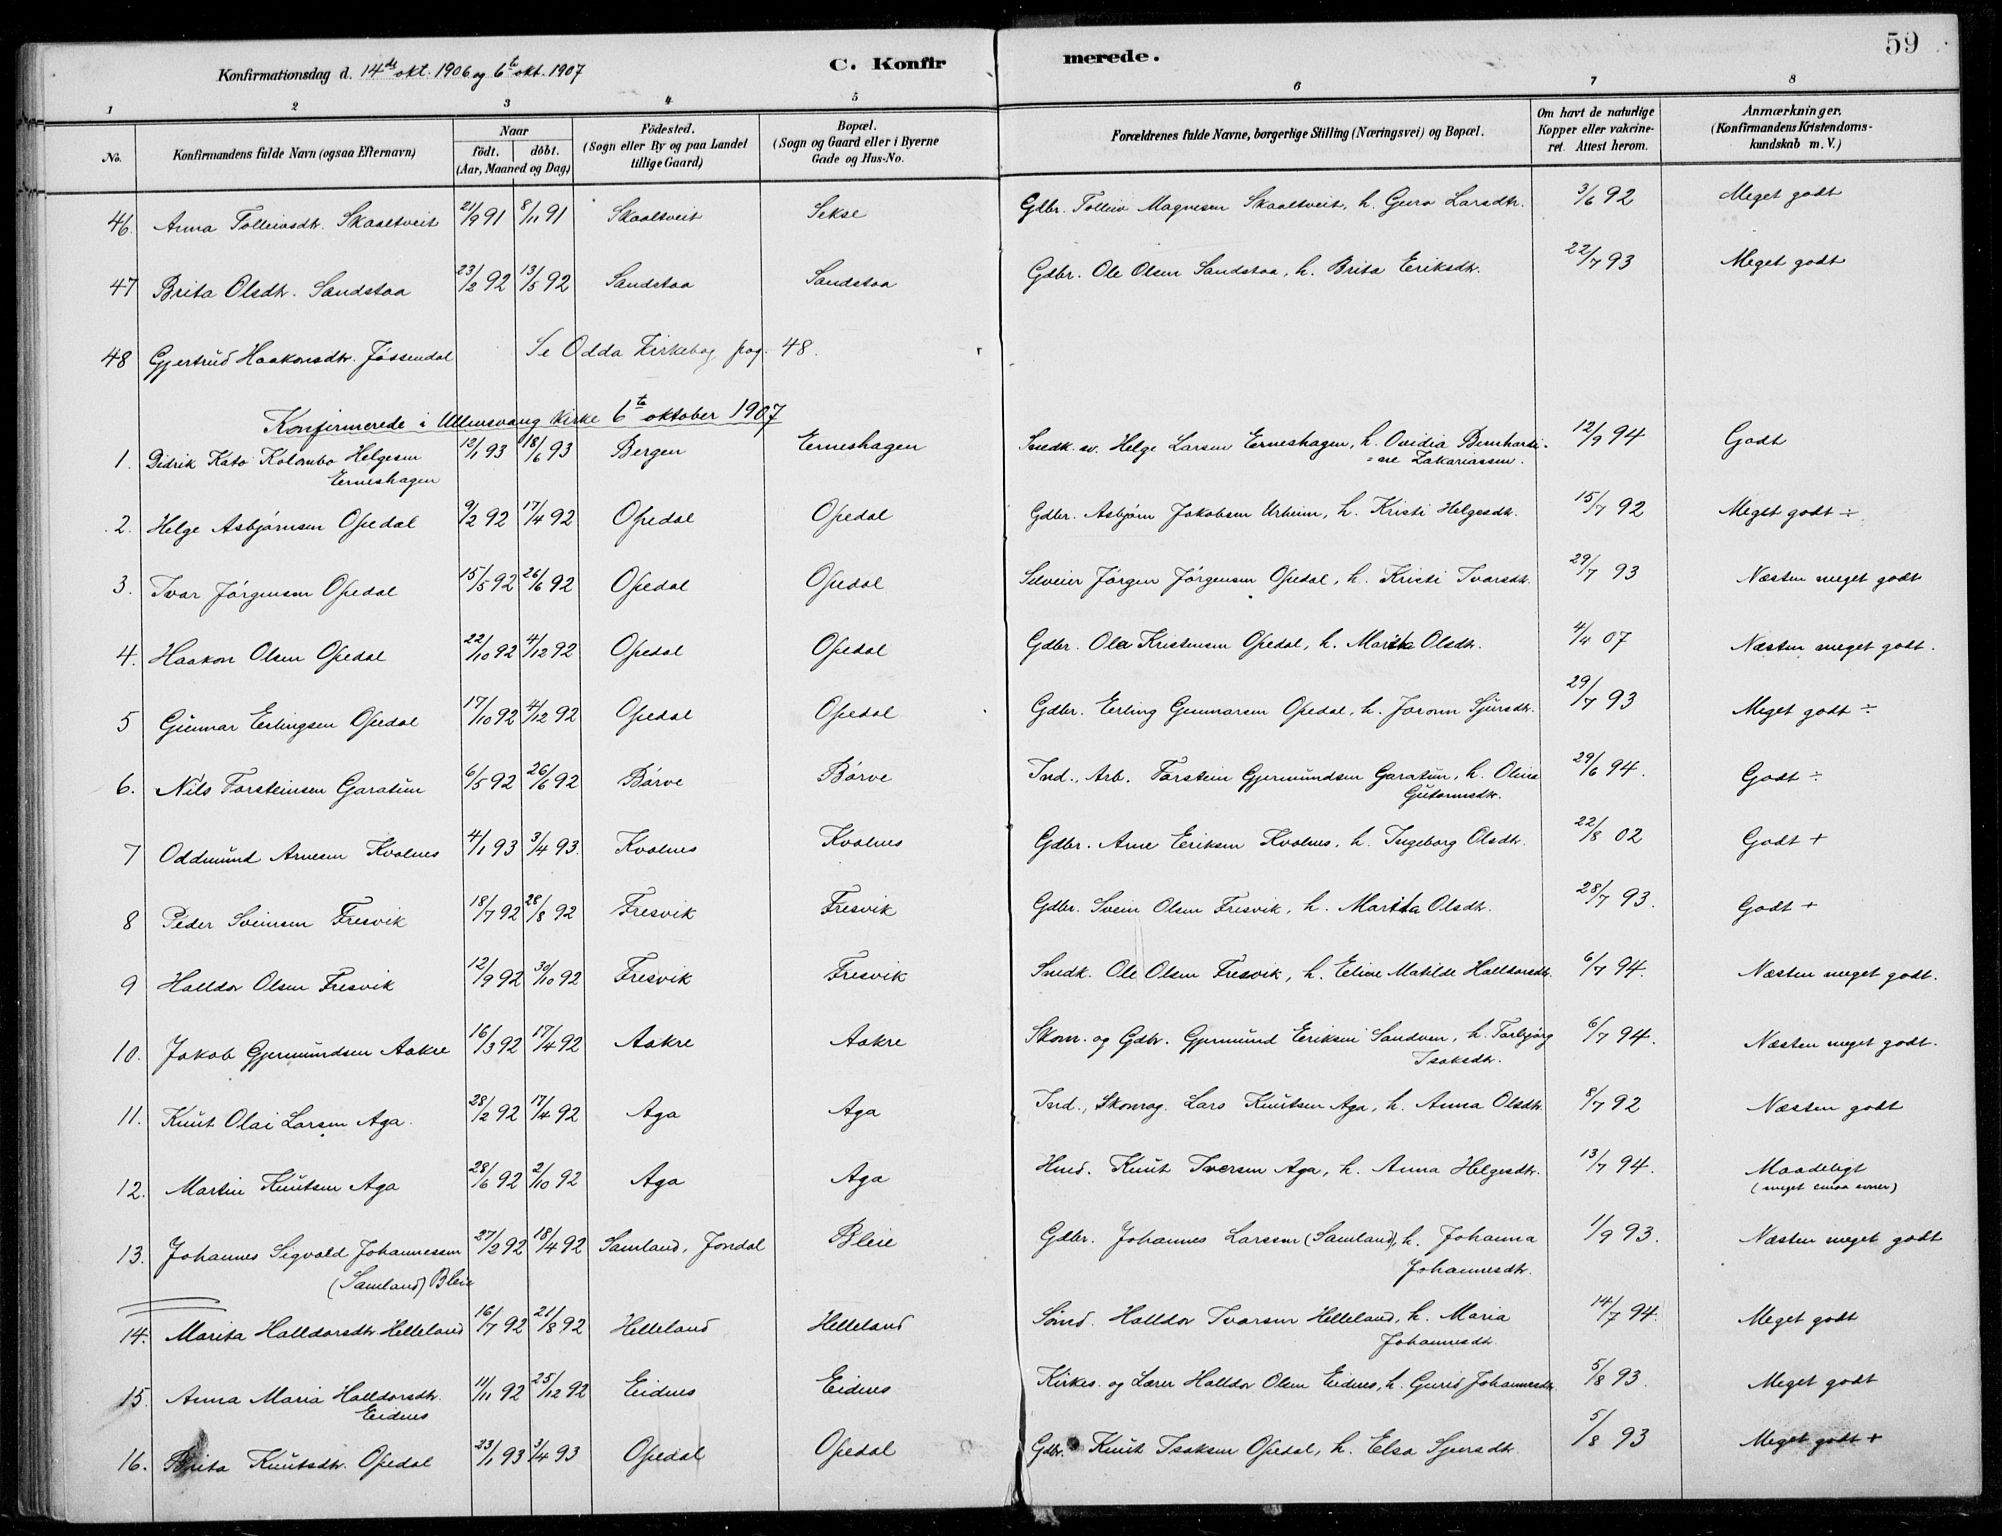 59
Konfirmationsdag d. 14de okt. 1906 og 6te okt. 1907 C. Konfirmerede.
1 2 3 4 5 6 7 8
No. Konfirmandens fulde Navn (ogsaa Efternavn) Naar født. døbt. (Aar, Maaned og Dag) Fødested. (Sogn eller By og paa Landet tillige Gaard) Bopæl. (Sogn og Gaard eller i Byerne Gade og Hus-No. Forældrenes fulde Navne, borgerlige Stilling (Næringsvei) og Bopæl. Om havt de naturlige Kopper eller vakcineret. Attest herom. Anmærkninger, (Konfirmandens Kristendomskundskab m. V.)
46. Anna Tolleivsdtr. Skaaltveit 21/9 91 8/11 91 Skaaltveit Sekse Gdbr. Tolleiv Magnesen Skaaltveit, h. Guro Larsdtr. 3/6 92 Meget godt
47 Brita Olsdtr. Sandstaa 23/2 92 13/5 92 Sandstaa Sandstaa Gdbr. Ole Olsen Sandstaa, h. Brita Eriksdtr. 22/7 93 Meget godt
48 Gjertrud Haakonsdtr. Jøssendal Se Odda Kirkebog pag. 48.
Konfirmerede i Ullensvang Kirke 6te oktober 1907
1. Didrik Kato Kolombo Helgesen 12/1 93 18/6 93 Bergen Erneshagen Snedk. sv. Helge Larsen Erneshagen, h. Ovidia Bernharti- 12/9 94 Godt
Erneshagen =ne Zakariassen.
2. Helge Asbjørnsen Opedal 9/2 92 17/4 92 Opedal Opedal Gdbr. Asbjørn Jakobsen Urheim, h. Kristi Helgesdtr. 15/7 92 Meget godt ÷
3. Ivar Jørgensen Opedal 15/5 92 26/6 92 Opedal Opedal Selveier Jørgen Jørgensen Opedal, h. Kristi Ivarsdtr. 29/7 93 Næsten meget godt
4. Haakon Olsen Opedal 22/10 92 4/12 92 Opedal Opedal Gdbr. Ola Kristensen Opedal, h. Marita Olsdtr. 4/4 07 Næsten meget godt.
5 Gunnar Erlingsen Opedal 17/10 92 4/12 92 Opedal Opedal Gdbr. Erling Gunnarsen Opedal, h. Joronn Sjursdtr. 29/7 93 Meget godt ÷
6. Nils Torsteinsen Garatun 6/5 92 26/6 92 Børve Børve Ind., Arb. Torstein Gjermundsen Garatun, h. Olina 29/6 94. Godt ÷
Gutormsdtr.
7 Oddmund Arnesen Kvalnes 4/1 93 3/4 93. Kvalnes Kvalnes Gdbr. Arne Eriksen Kvalnes, h. Ingeborg Olsdtr. 22/8 02 Godt +
8 Peder Sveinsen Fresvik 18/7 92 28/8 92 Fresvik Fresvik Gdbr. Svein Olsen Fresvik, h. Marita Olsdtr. 28/7 93. Godt +
9 Halldor Olsen Fresvik 12/9 92 30/10 92 Fresvik Fresvik Snedk. Ole Olsen Fresvik, h. Eline Matilde Halldorsdtr. 6/7 94. Næsten meget godt.
10. Jakob Gjermundsen Aakre 16/3 92 17/4 92 Aakre Aakre Skom. og Gdbr. Gjermund Eriksen Sandven, h. Torbjørg 6/7 94. Næsten meget godt.
Isaksdtr.
11. Knut Olai Larsen Aga. 28/2 92 17/4 92 Aga Aga Ind., Skomag. Lars Knutsen Aga, h. Anna Olsdtr. 8/7 92 Næsten godt
12. Martin Knutsen Aga 28/6 92 2/10 92 Aga Aga Hmd. Knut Iversen Aga, h. Anna Helgesdtr. 13/7 94. Maadeligt
(meget smaa evner)
13. Johannes Sigvald Johannessen 27/2 92 18/4 92 Samland, Jondal Bleie Gdbr. Johannes Larssen (Samland), h. Johanna 1/9 93. Næsten meget godt
(Samland) Bleie Johannesdtr.
14. Marita Halldorsdtr. Helleland 16/7 92 21/8 92 Helleland Helleland Smed. Halldor Ivarsen Helleland, h. Maria 14/7 94. Meget godt
Johannesdtr.
15. Anna Maria Halldorsdtr. 11/11 92 25/12 92 Eidnes Eidnes Kirkes. og Lærer Halldor Olsen Eidnes, h. Gurid Johannesdtr. 5/8 93. Meget godt
Eidnes
16. Brita Knutsdtr. Opedal 23/1 93 3/4 93 Opedal Opedal Gdbr. Knut Isaksen Opedal, h. Elsa Sjursdtr. 5/8 93 Meget godt +